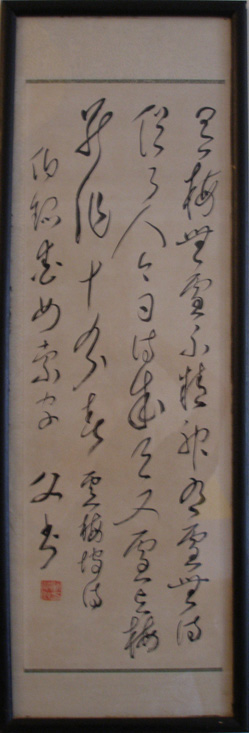 有梅無雪不精神有雪無詩
俗了人今日詩成天又雪與梅
並作十分春 盧梅坡詩
父書